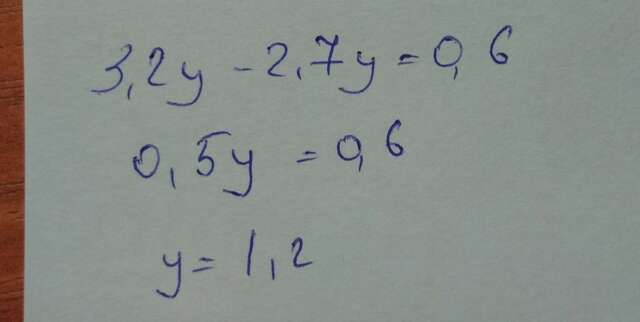 3,2y - 2,7y = 0,6
0,5y = 0,6
y = 1,2